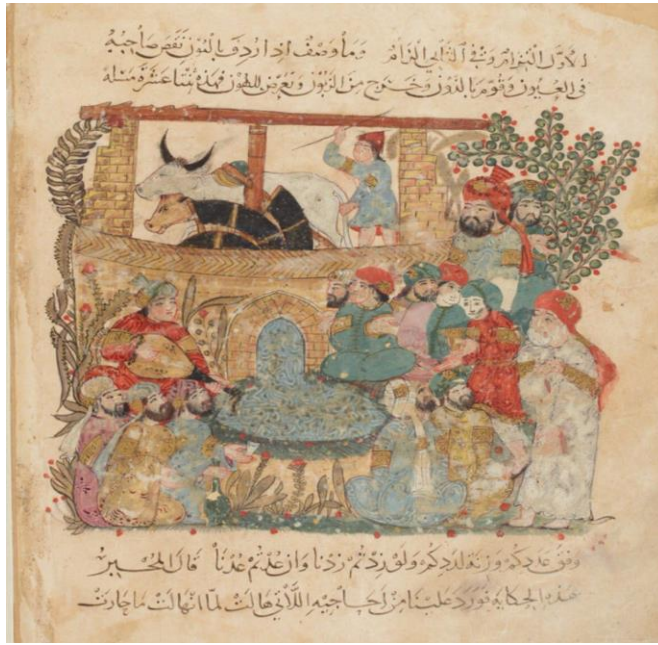 الاول التزام وفي الثاني الزام وما وصف اذا اردف بالنون نقص صاحبه
في العيون وقوم بالدون وخرج من الزبون وتعرض للهون فهذه ثنتا عشرة مسئلة
وفق عددكم وزنة لددكم ولو زدتم زدنا وان عدتم عدنا قال المخبر
بهذه الحكاية فورد علينا من احاجيه اللاتي هالت لما انهالت ما حارت